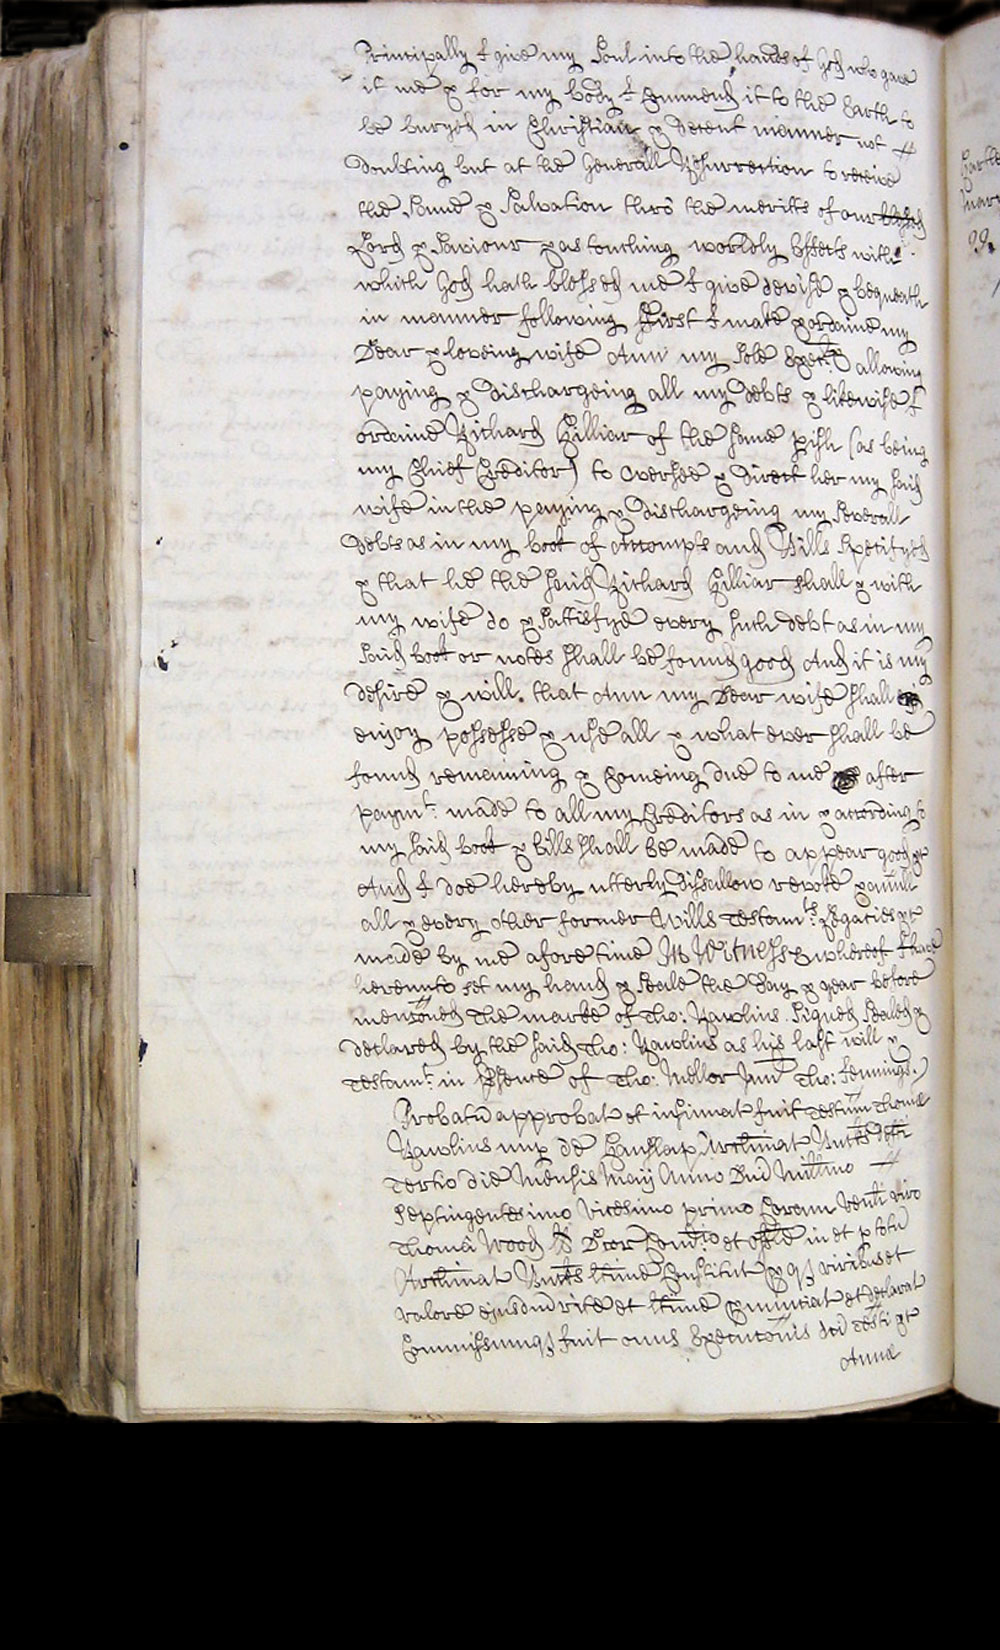 Principally I give my Soul into the hands of God who gave
it me & for my body I Commend it to the Earth to
be buryed in Christian & decent manner not
doubting but at the Generall Resurrection to receive
the Same & Salvation thro the meritts of our blessed
Lord & Saviour & as touching worldly Effects with
which God hath blessed me I give devise & bequeath
in manner following First I make & ordaine my
Dear & loveing wife Ann my Sole Exec:x allowing
paying & dischargeing all my debts & likewise I
ordaine Richard Hilliar of the same pish (as being
my Chief Creditor) to oversee & direct her my said
wife in the paying & dischargeing my Severall
debts as in my book of accompts and Bills Specifyed
& that he the said Richard Hilliar shall & with
my wife do & Sattisfye every such debt as in my
said book or notes shall be found good And it is my
desire & will that Ann my Dear wife shall
enjoy possesse & use all & what ever shall be
found remaining & Comeing due to me after
paymt. made to all my Creditors as in & according to
my said book & bills shall be made to appear good &c
And I doe hereby utterly disallow revoke & anull
all & every other former Wills Testamts. Legacies &c
made by me afore time In Witness whereof I have
hereunto set my hand & Seale the day & year before
mentoned The marke of Tho: Rawlins. Signed Sealed &
declared by the said Tho: Rawlins as his last will &
Testamt. in Psence of Tho: Mellor Junr Tho: Jennings.)
Probatu approbat et insinuat fuit Testum Thomæ
Rawlins nup de Hanslap Archinat Bucks
Tertio die Mensis Maij Anno Dni Millimo
Septingentesimo Vicesimo primo Coram Venli viro
Thoma Wood LL Dcor Comrio et offle in et p totu
Archinat Bucks ltime Constitut & qz viribus et
valore ejusdm rite et ltime pnunciat et declarat
Commissumqz fuit onus Executonis dci Testi &c
Annæ